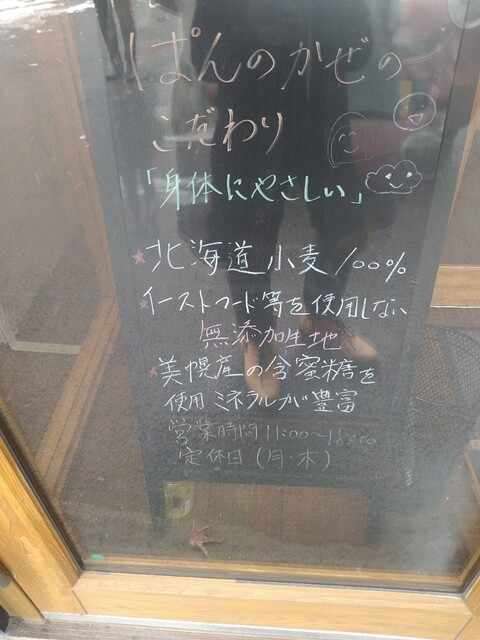 ぱんのかぜの
こだわり
「身体にやさしい」
★北海道小麦100%
★イーストフード等を使用しない
無添加生地
★美幌産の含蜜糖を
使用 ミネラルが豊富
営業時間11:00〜18:00
定休日(月・木)